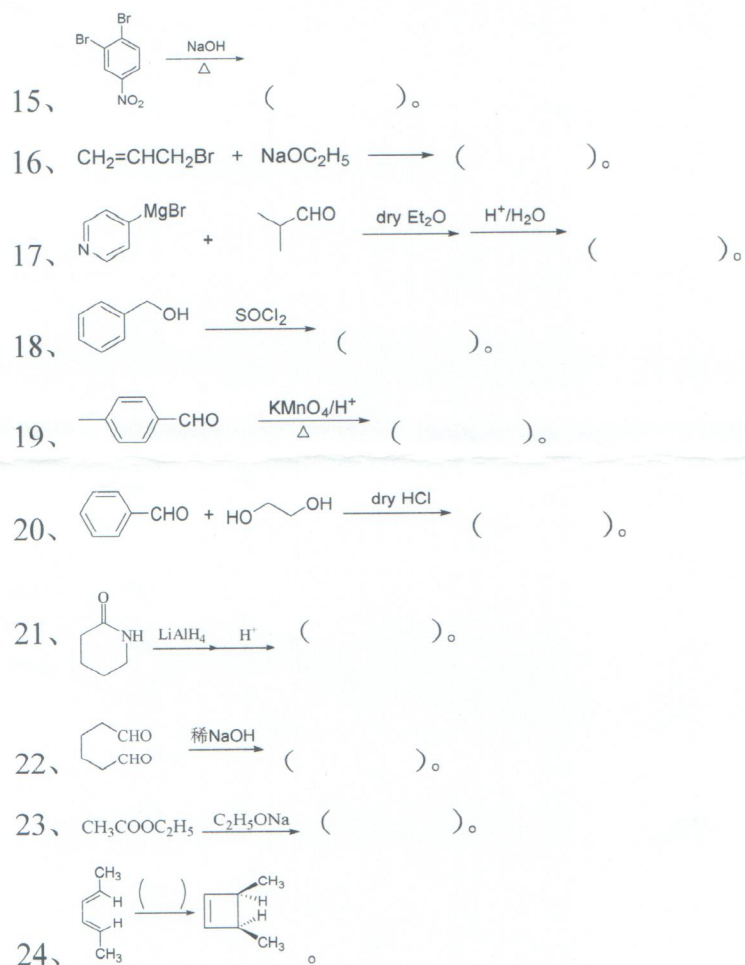 Br
Br
NO₂
NaOH
△
15、 ( )。
16、 CH₂=CHCH₂Br + NaOC₂H₅ ( )。
17、 N MgBr + CHO dry Et₂O H⁺/H₂O ( )。
18、 OH SOCl₂ ( )。
19、 CHO KMnO₄/H⁺ △ ( )。
20、 CHO + HO OH dry HCl ( )。
21、 O NH LiAlH₄ H⁺ ( )。
22、 CHO CHO 稀NaOH ( )。
23、 CH₃COOC₂H₅ C₂H₅ONa ( )。
24、 CH₃ H H CH₃ ( ) CH₃ H H CH₃ 。